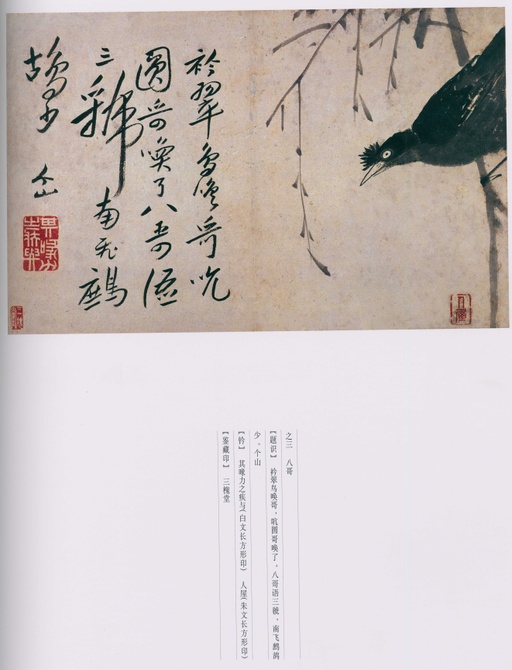 衿翠鸟唤哥吭
圆哥唤了八哥语
三虢南飞鷓
鴣少 个山
之三 八哥
【题识】 衿翠鸟唤哥,吭圆哥唤了。八哥语三虢,南飞鹧鸪
少。个山
【钤】 其喙力之疾与(白文长方形印) 人屋(朱文长方形印)
【鉴藏印】 三槐堂